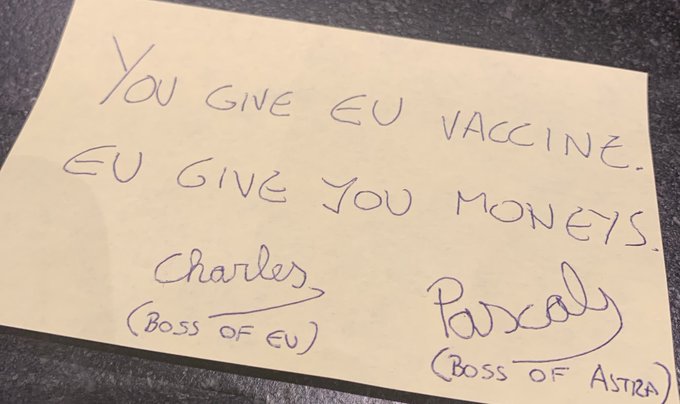 YOU GIVE EU VACCINE.
EU GIVE YOU MONEYS.
Charles
(BOSS OF EU)
Pascal
(BOSS OF ASTRA)